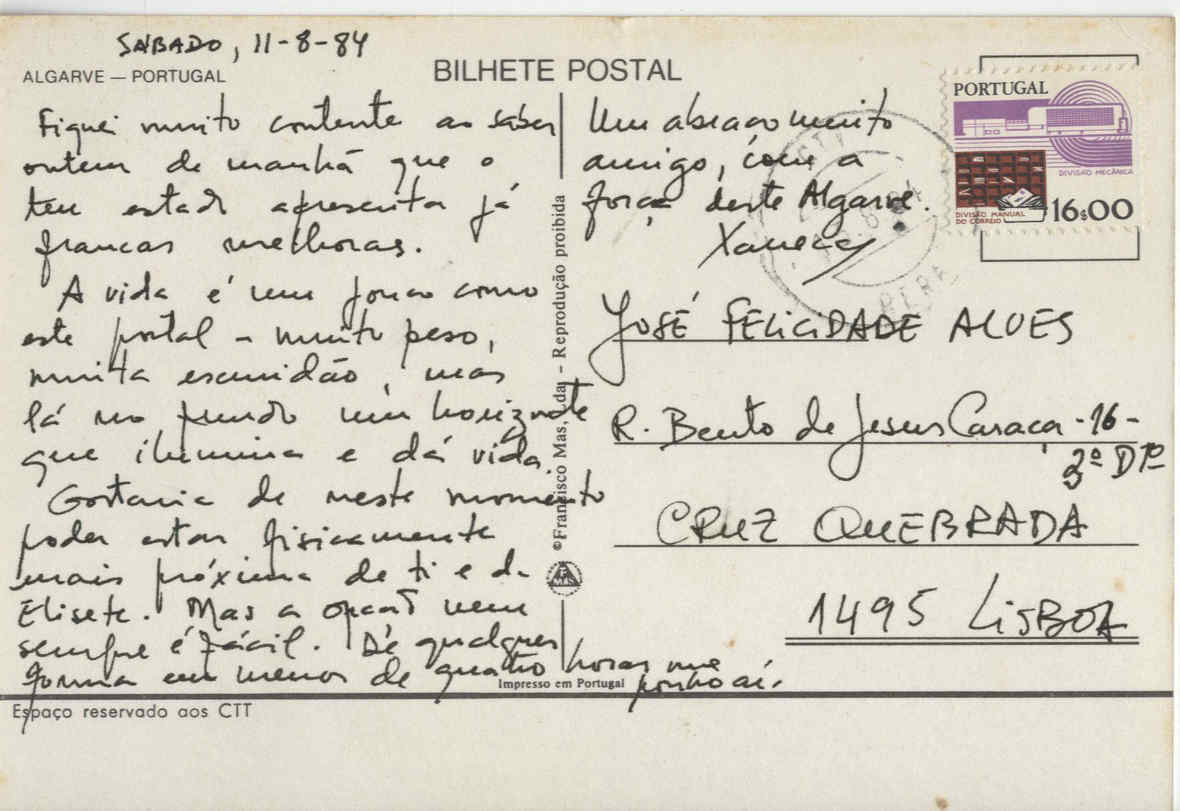 SÁBADO, 11-8-84
ALGARVE — PORTUGAL
BILHETE POSTAL
Fiquei muito contente ao saber
ontem de manhã que o
teu estado apresenta já
francas melhoras.
A vida é um pouco como
este postal - muito peso,
muita escuridão, mas
lá no fundo um horizonte
que ilumina e dá vida.
Gostaria de neste momento
poder estar fisicamente
mais próxima de ti e da
Elisete. Mas a opção nem
sempre é fácil. De qualquer
forma em menos de quatro horas me
ponho aí.
Um abraço muito
amigo, com a
força deste Algarve.
©Francisco Mas, Lda. - Reprodução proibida
Impresso em Portugal
PORTUGAL
DIVISÃO MECÂNICA
DIVISÃO MANUAL
DO CORREIO
16$00
JOSÉ FELICIDADE ALVES
R. Bento de Jesus Caraça -16-
3º DTº
CRUZ QUEBRADA
1495 LISBOA
Espaço reservado aos CTT